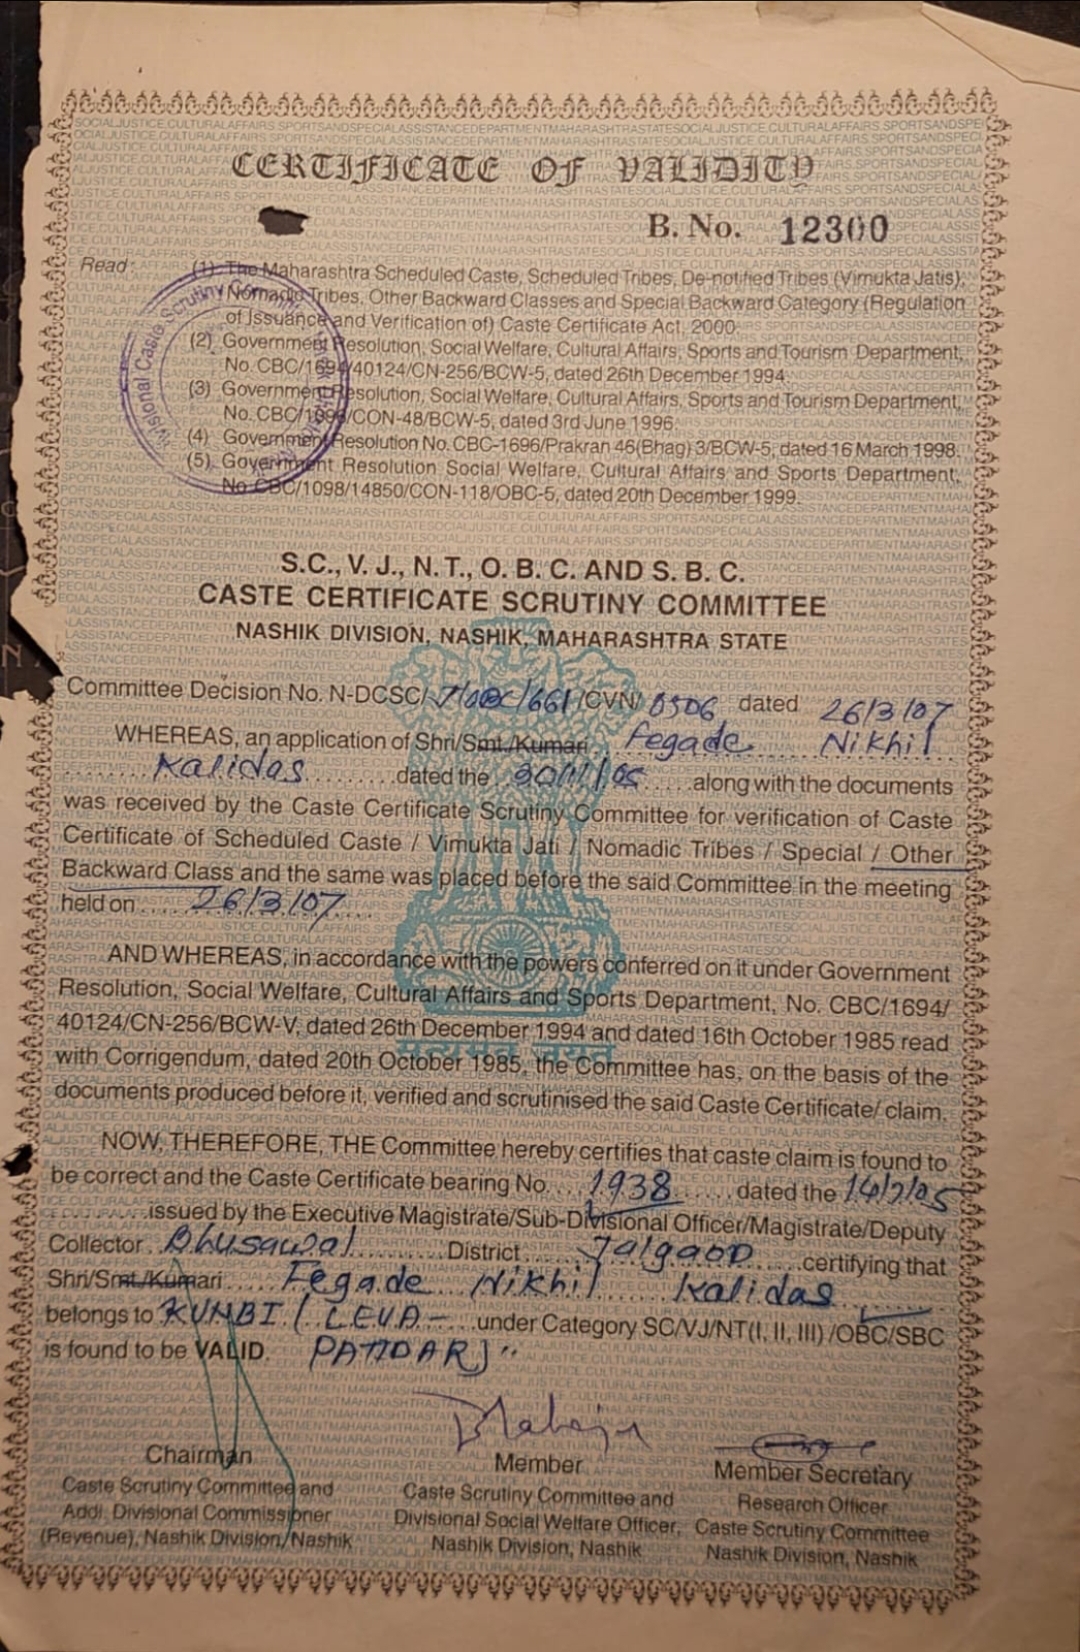 CERTIFICATE OF VALIDITY
B. No. 12300
Read : (1) The Maharashtra Scheduled Caste, Scheduled Tribes, De-notified Tribes (Vimukta Jatis),
Nomadic Tribes, Other Backward Classes and Special Backward Category (Regulation
of Issuance and Verification of) Caste Certificate Act, 2000.
(2) Government Resolution, Social Welfare, Cultural Affairs, Sports and Tourism Department,
No. CBC/1694/40124/CN-256/BCW-5, dated 26th December 1994.
(3) Government Resolution, Social Welfare, Cultural Affairs, Sports and Tourism Department,
No. CBC/1096/CON-48/BCW-5, dated 3rd June 1996.
(4) Government Resolution No. CBC-1696/Prakran 46(Bhag) 3/BCW-5, dated 16 March 1998.
(5) Government Resolution Social Welfare, Cultural Affairs and Sports Department,
No. CBC/1098/14850/CON-118/OBC-5, dated 20th December 1999.
S.C., V. J., N. T., O. B. C. AND S. B. C.
CASTE CERTIFICATE SCRUTINY COMMITTEE
NASHIK DIVISION, NASHIK, MAHARASHTRA STATE
Committee Decision No. N-DCSC/ J/OBC/661/CVN/ 0506 dated 26/3/07
WHEREAS, an application of Shri/Smt./Kumari Fegade Nikhil
Kalidas dated the 30/11/05 along with the documents
was received by the Caste Certificate Scrutiny Committee for verification of Caste
Certificate of Scheduled Caste / Vimukta Jati / Nomadic Tribes / Special / Other
Backward Class and the same was placed before the said Committee in the meeting
held on 26/3/07
AND WHEREAS, in accordance with the powers conferred on it under Government
Resolution, Social Welfare, Cultural Affairs and Sports Department, No. CBC/1694/
40124/CN-256/BCW-V, dated 26th December 1994 and dated 16th October 1985 read
with Corrigendum, dated 20th October 1985, the Committee has, on the basis of the
documents produced before it, verified and scrutinised the said Caste Certificate/ claim.
सत्यमेव जयते
NOW, THEREFORE, THE Committee hereby certifies that caste claim is found to
be correct and the Caste Certificate bearing No. 1938 dated the 14/7/05
issued by the Executive Magistrate/Sub-Divisional Officer/Magistrate/Deputy
Collector Bhusawal District Jalgaon certifying that
Shri/Smt./Kumari Fegade Nikhil Kalidas
belongs to KUNBI / LEVA- under Category SC/VJ/NT(I, II, III) /OBC/SBC
is found to be VALID. PATIDAR
Chairman
Caste Scrutiny Committee and
Addl. Divisional Commissioner
(Revenue), Nashik Division, Nashik
Member
Caste Scrutiny Committee and
Divisional Social Welfare Officer,
Nashik Division, Nashik
Member Secretary
Research Officer
Caste Scrutiny Committee
Nashik Division, Nashik